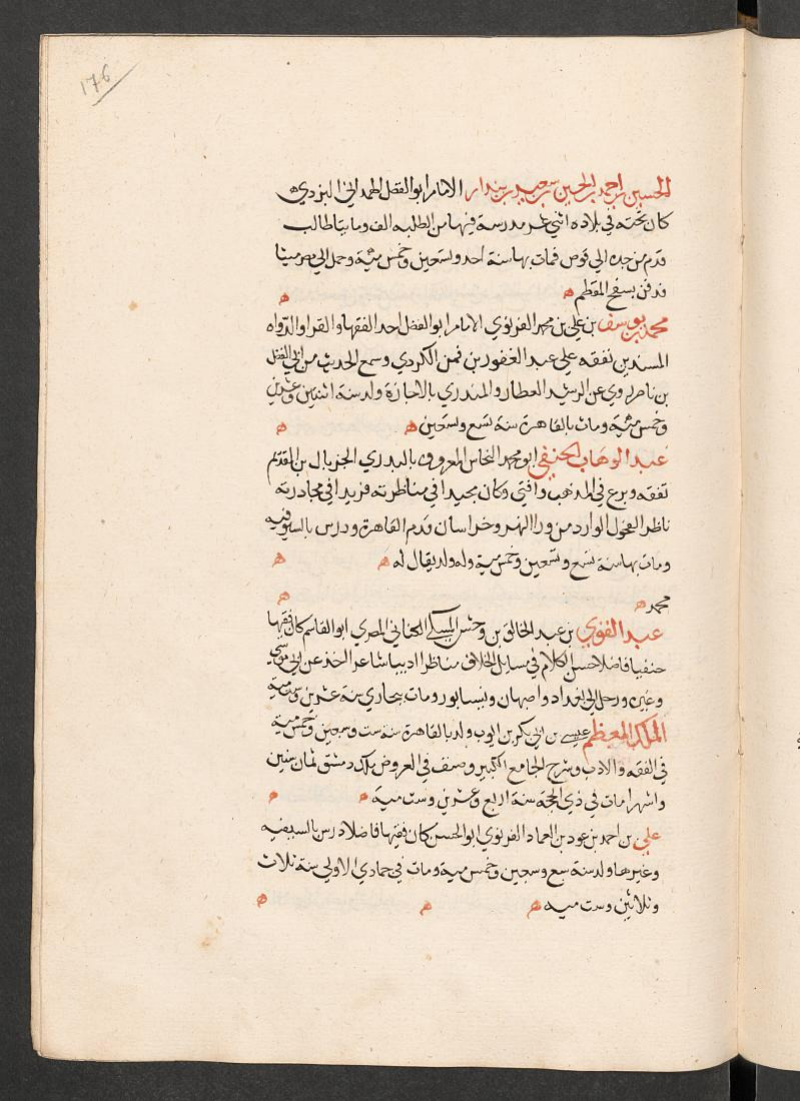 176
الحسين بن احمد بن الحسين بن سعيد بن بندار الامام ابو الفضل الهمداني اليزدي
كان تحته في بلاده اثني عشر مدرسة فيها من الطلبه الف ومايتا طالب
قدم من جده الي قوص فمات بها سنة احد وتسعين وخمس مئية وحمل الي مصر ميتا
فدفن بسفح المقطم
محمد بن يوسف بن علي بن محمد الغزنوي الامام ابو الفضل احد الفقها والقرا والرواه
المسندين تفقه علي عبد الغفور بن لقمن الكردي وسمع الحديث من ابي الفضل
بن ناصر روي عن الرشيد العطار والمنذري بالاجازة ولد سنة اثنتين وعشرين
وخمس مئية ومات بالقاهرة سنة تسع وتسعين
عبد الوهاب الحنفي ابو محمد النحاس المعروف بالبدري المجن بال بن المقدم
تفقه وبرع في المذهب وافتي وكان مجيدا في مناظرته فريدا في محاورته
ناظر الفحول الوارد من ورا النهر وخراسان قدم القاهرة ودرس بالسيوفيه
ومات بها سنة تسع وتسعين وخمس مية وله ولد يقال له
محمد
عبد القوي بن عبد الخالق بن وحش المسكي الكناني المصري ابو القاسم كان فقيها
حنفيا فاضلا حسن الكلام في مسايل الخلاف مناظرا اديبا شاعرا اخذ عن ابي موسي
وغيره ورحل الي بغداد واصبهان ونيسابور ومات ببخاري سنة عشرين وست مية
الملك المعظم عيسي بن ابي بكر بن ايوب ولد بالقاهرة سنة ست وسبعين وخمس مية
في الفقه والادب وشرح الجامع الكبير وصنف في العروض ملك دمشق ثمان سنين
واشهرا مات في ذي الحجة سنة اربع وعشرين وست مية
علي بن احمد بن محمود بن العماد الغزنوي ابو الحسن كان فقيها فاضلا درس بالسيوفيه
وغيرها ولد سنة سبع وسبعين وخمس مية ومات في جمادي الاولي سنة ثلاث
وثلاثين وست ميه